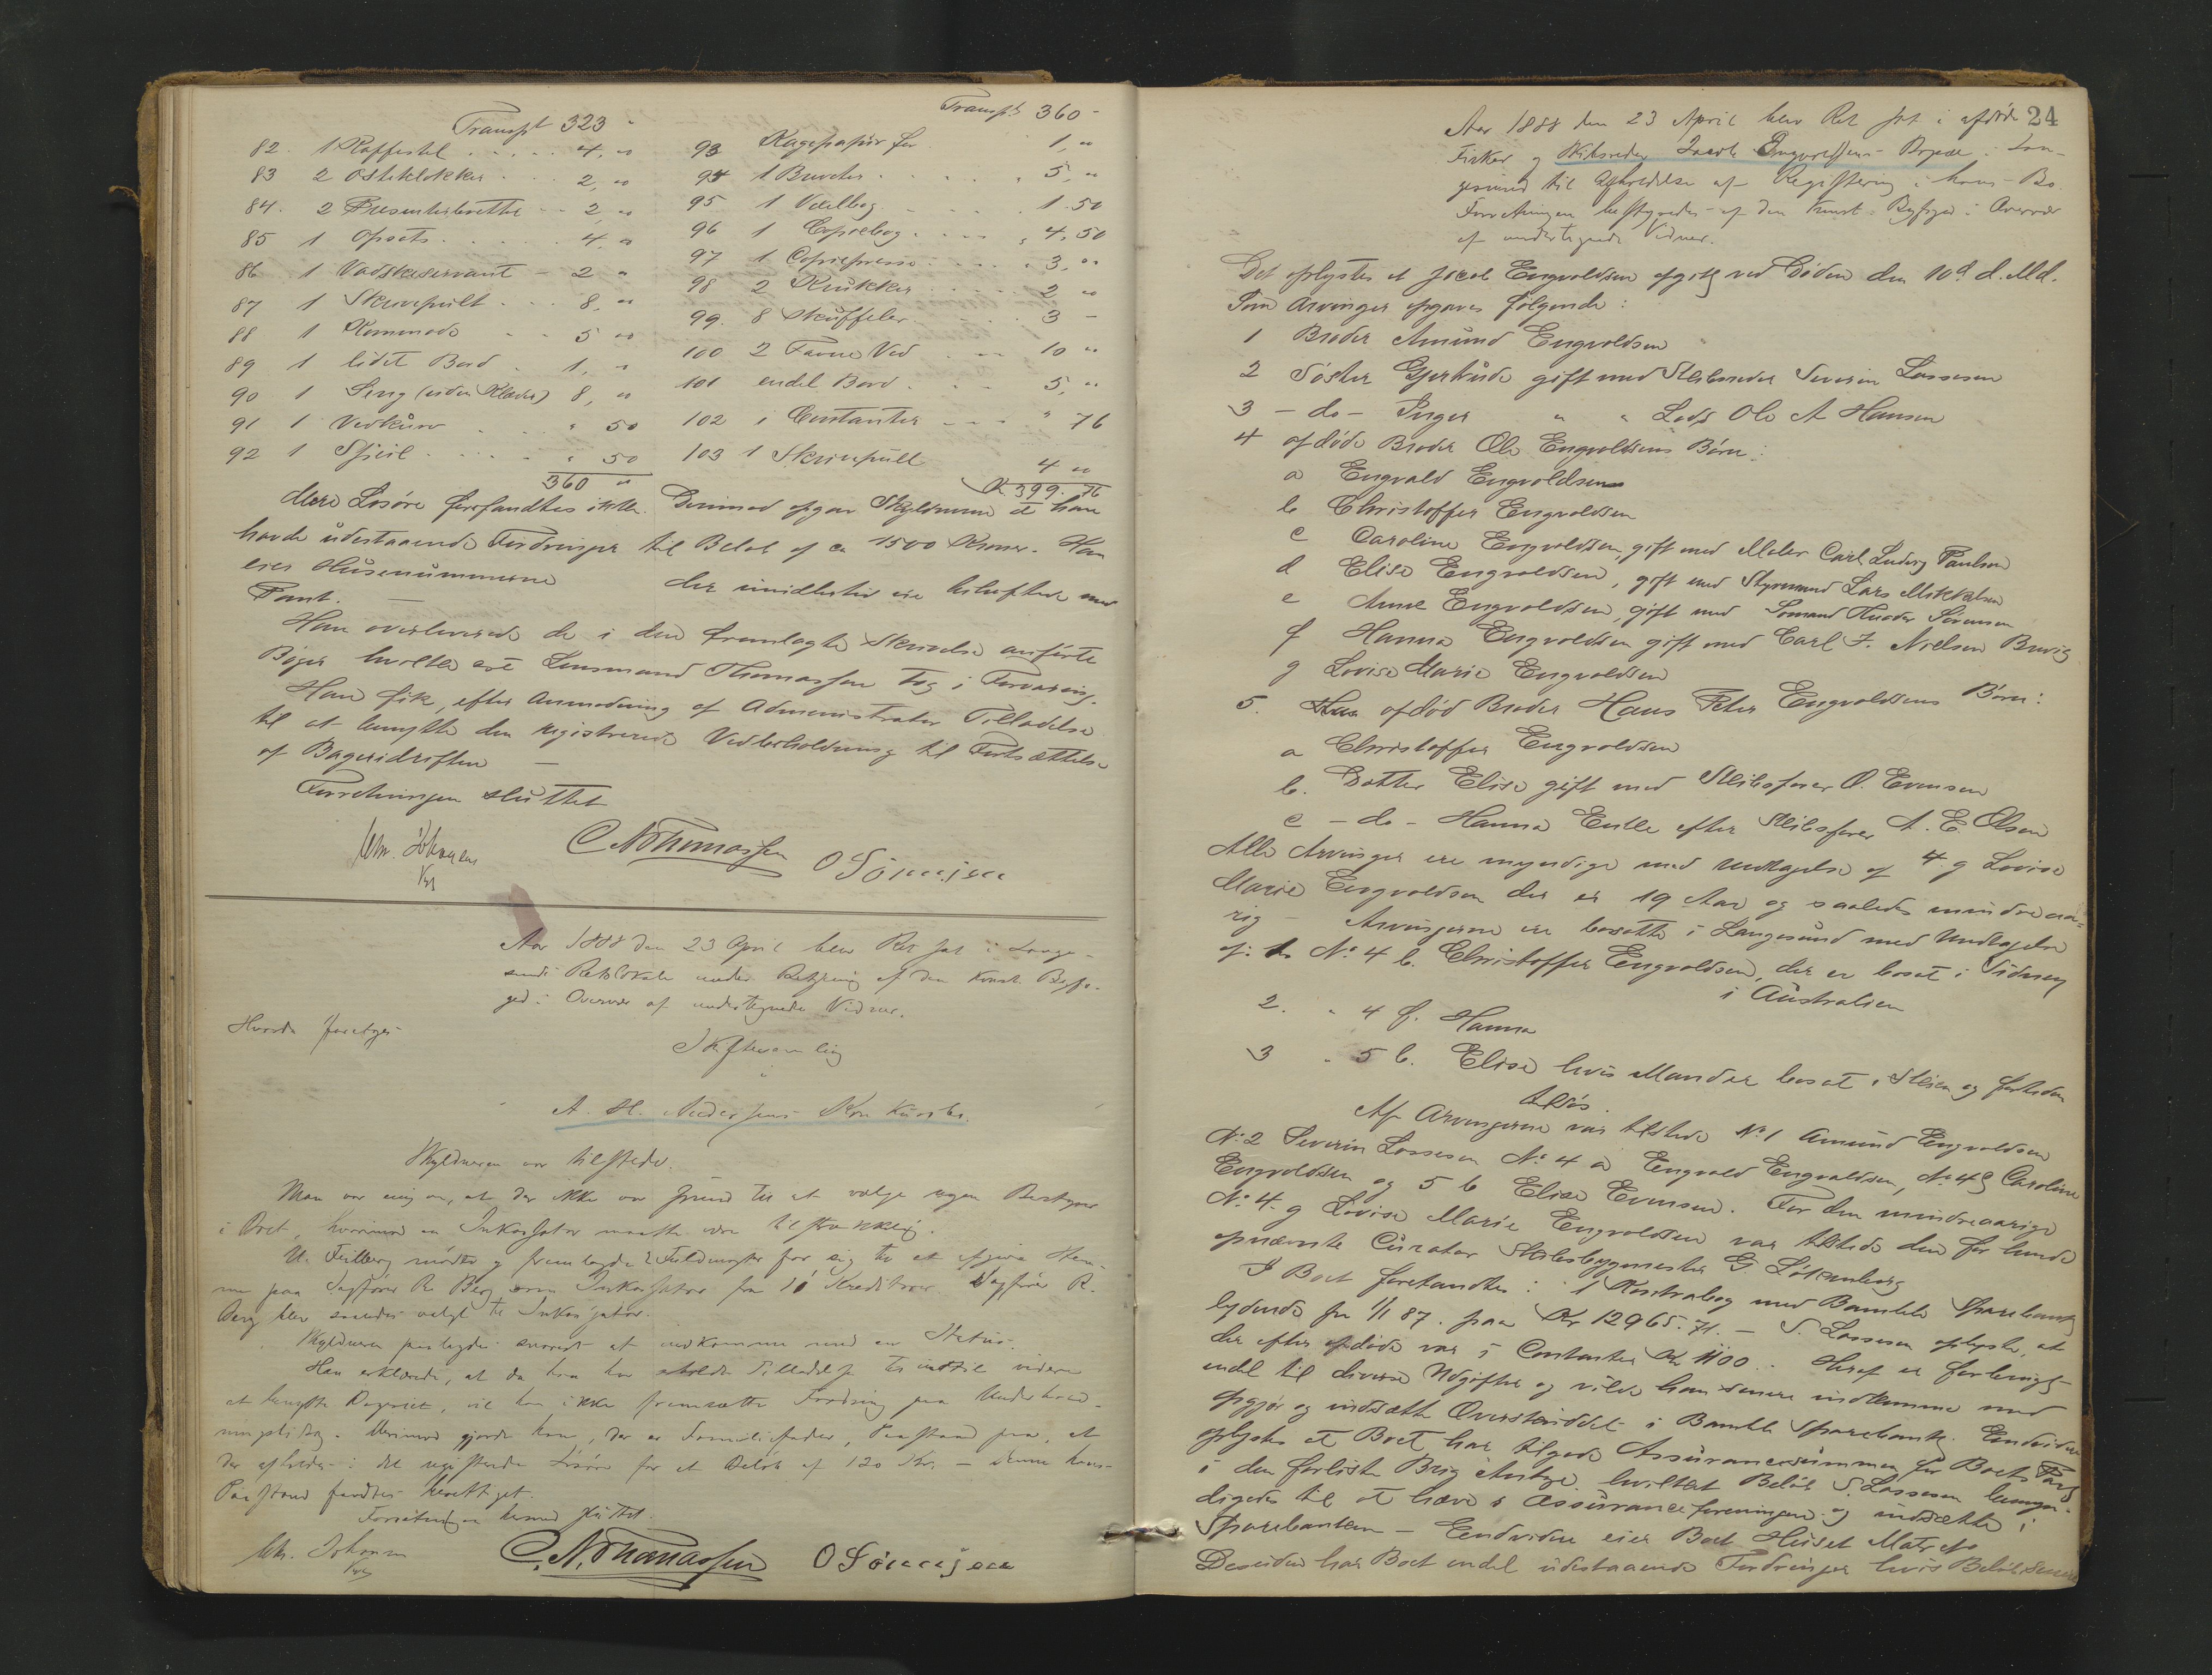 Transpt 323 "
82. 1 Kaffestel . . . . 4, "
83 2 Osteklokker . . . 2, "
84. 2 Presenterbrette - - 2, "
85 1 Opsats . . . . . 4, "
86 1 Vadskeservant - 2 "
87 1 Skrivepult . . . 8, "
88 1 Kommode - - 5 "
89 1 lidet Bord . 1, "
90 1 Seng (uden Klæder) 8, "
91 1 Vedkurv . . " 50
92 1 Speil . . . . . " 50
360 "
Transpt 360 -
93 Kagepapir for 1, "
94 1 . . . . . 5, "
95 1 . . . . 1. 50
96 1 Copiebog . . . . 4, 50
97 1 Copiepresse . . . . 3, "
98 2 Krukker . . . . 2 "
99. 8 Skuffeler . . . 3 -
100 2 Favne Ved . . 10 "
101 endel Bord . . . 5, "
102 i Contanter - - - " 76
103 1 Skrivepult 4 "
K. 399. 76
Mere Løsøre forefandtes ikke. Derimod opgav Skyldneren at han
havde udestaaende Fordringer til Beløb af ca 1500 Kroner. Han
eier Husenummerne der imidlertid ere behæftede med
Pant. —
Han overleverede de i den fremlagte Skrivelse anførte
Bøger hvilke Lensmand Thomassen tog i Forvaring.
Han fik, efter Anmodning af Administrator Tilladelse
til at benytte den registrerede Vedbeholdning til Fortsættelse
af Bageridriften —
Forretningen sluttet
Chr. Johnsen C N Thomassen O Tönnesen
Aar 1888 den 23 April blev Ret sat i Lange-
sunds Retslokale under Betjening af den konst. Byfo-
ged i Overvær af undertegnede Vidner.
Hvorda foretoges
Skiftesamling
i
A. H. Andersens Konkursbo.
Skyldneren var tilstede.
Man var enig om, at der ikke var Grund til at vælge nogen Bestyrer
i Boet, hvorimod en Inkassator maatte være tilstrækkelig.
N. mødte og fremlagde 2 Fuldmagter for sig til at afgive Stem-
me paa Sagfører R. Berg som Inkassator fra 10 Kreditorer. Sagfører R.
Berg blev saaledes valgt til Inkassator.
Skyldneren paalagdes snarest at indkomme med en Status.
Han erklærede, at da han har erholdt Tilladelse til indtil videre
at benytte Bageriet, vil han ikke fremsætte Fordring paa Underhold-
ningsbidrag. Derimod gjorde han, der er Familiefader, Paastand paa, at
der afholdes i det registrerede Løsøre for et Beløb af 120 Kr. — Denne hans
Paastand fandtes berettiget.
Forretningen hermed sluttet.
Chr. Johnsen C. N. Thomassen O Tönnesen
24
Aar 1888 den 23 April blev Ret sat i afdøde
Fisker og Skibsreder Jacob Engvoldsens Bopæl i Lan-
gesund til Afholdelse af Registrering i hans Bo
Forretningen bestyredes af den konst. Byfoged i Overvær
af undertegnede Vidner.
Det oplystes at Jacob Engvoldsen afgik ved Døden den 10d d. Md.
Som Arvinger opgaves følgende :
1 Broder Amund Engvoldsen
2 Søster Gjertrude gift med Skibsreder Severin Lassesen
3 - do - Inger " " Lods Ole A Hansen
4 afdøde Broder Ole Engvoldsens Børn :
a Engvald Engvoldsen
b Christoffer Engvoldsen
c Caroline Engvoldsen, gift med Maler Carl Ludvig Paulsen
d Elise Engvoldsen, gift med Styrmand Lars Mikkelsen
e Anne Engvoldsen, gift med Sømand Sørensen
f Hanna Engvoldsen gift med Carl F. Nielsen Brevig
g Lovise Marie Engvoldsen
5. afdød Broder Hans Peter Engvoldsens Børn :
a Christoffer Engvoldsen
b. Datter Elise gift med Skibsfører O. Evensen
c - do - Hanna Enke efter Skibsfører A. E. Olsen
Alle Arvinger ere myndige med Undtagelse af 4. g Lovise
Marie Engvoldsen der er 19 Aar og saaledes mindreaa-
rig — Arvingerne ere bosatte i Langesund med Undtagelse
af: 1. No 4 b. Christoffer Engvoldsen, der er bosat i Sidney
i Australien
2. " 4 f. Hanna
3 " 5 b. Elise hvis Mand er bosat i Skien og fortiden
tilsøs.
Af Arvingerne var tilstede No 1 Amund Engvoldsen
No 2 Severin Lassesen No 4 a Engvald Engvoldsen, No 4 c Caroline
Engvoldsen og 5 b Elise Evensen. For den mindreaarige
No 4. g Lovise Marie Engvoldsen var tilstede den for hende
opnævnte Curator Skibsbygmester G.
I Boet forefandtes : 1 Kontrabog med Bamble Sparebank
lydende pr 1/1 87. paa Kr 12965. 71. — S. Lassesen oplyste, at
der efter afdøde var i Contanter Kr 1100. Heraf er forbrugt
endel til diverse Udgifter og vilde han senere indkomme med
Opgjør og indsætte Overskuddet i Bamble Sparebank. Endvidere
oplystes at Boet har tilgode Assurancesummen for Boets Part
i den forliste Brig hvilket Beløb S. Lassesen bemyn-
digedes til at hæve i Assuranceforeningen og indsætte i
Sparebanken — Endvidere eier Boet Huset Matr No
Desuden har Boet endel udestaaende Fordringer hvis Beløb senere